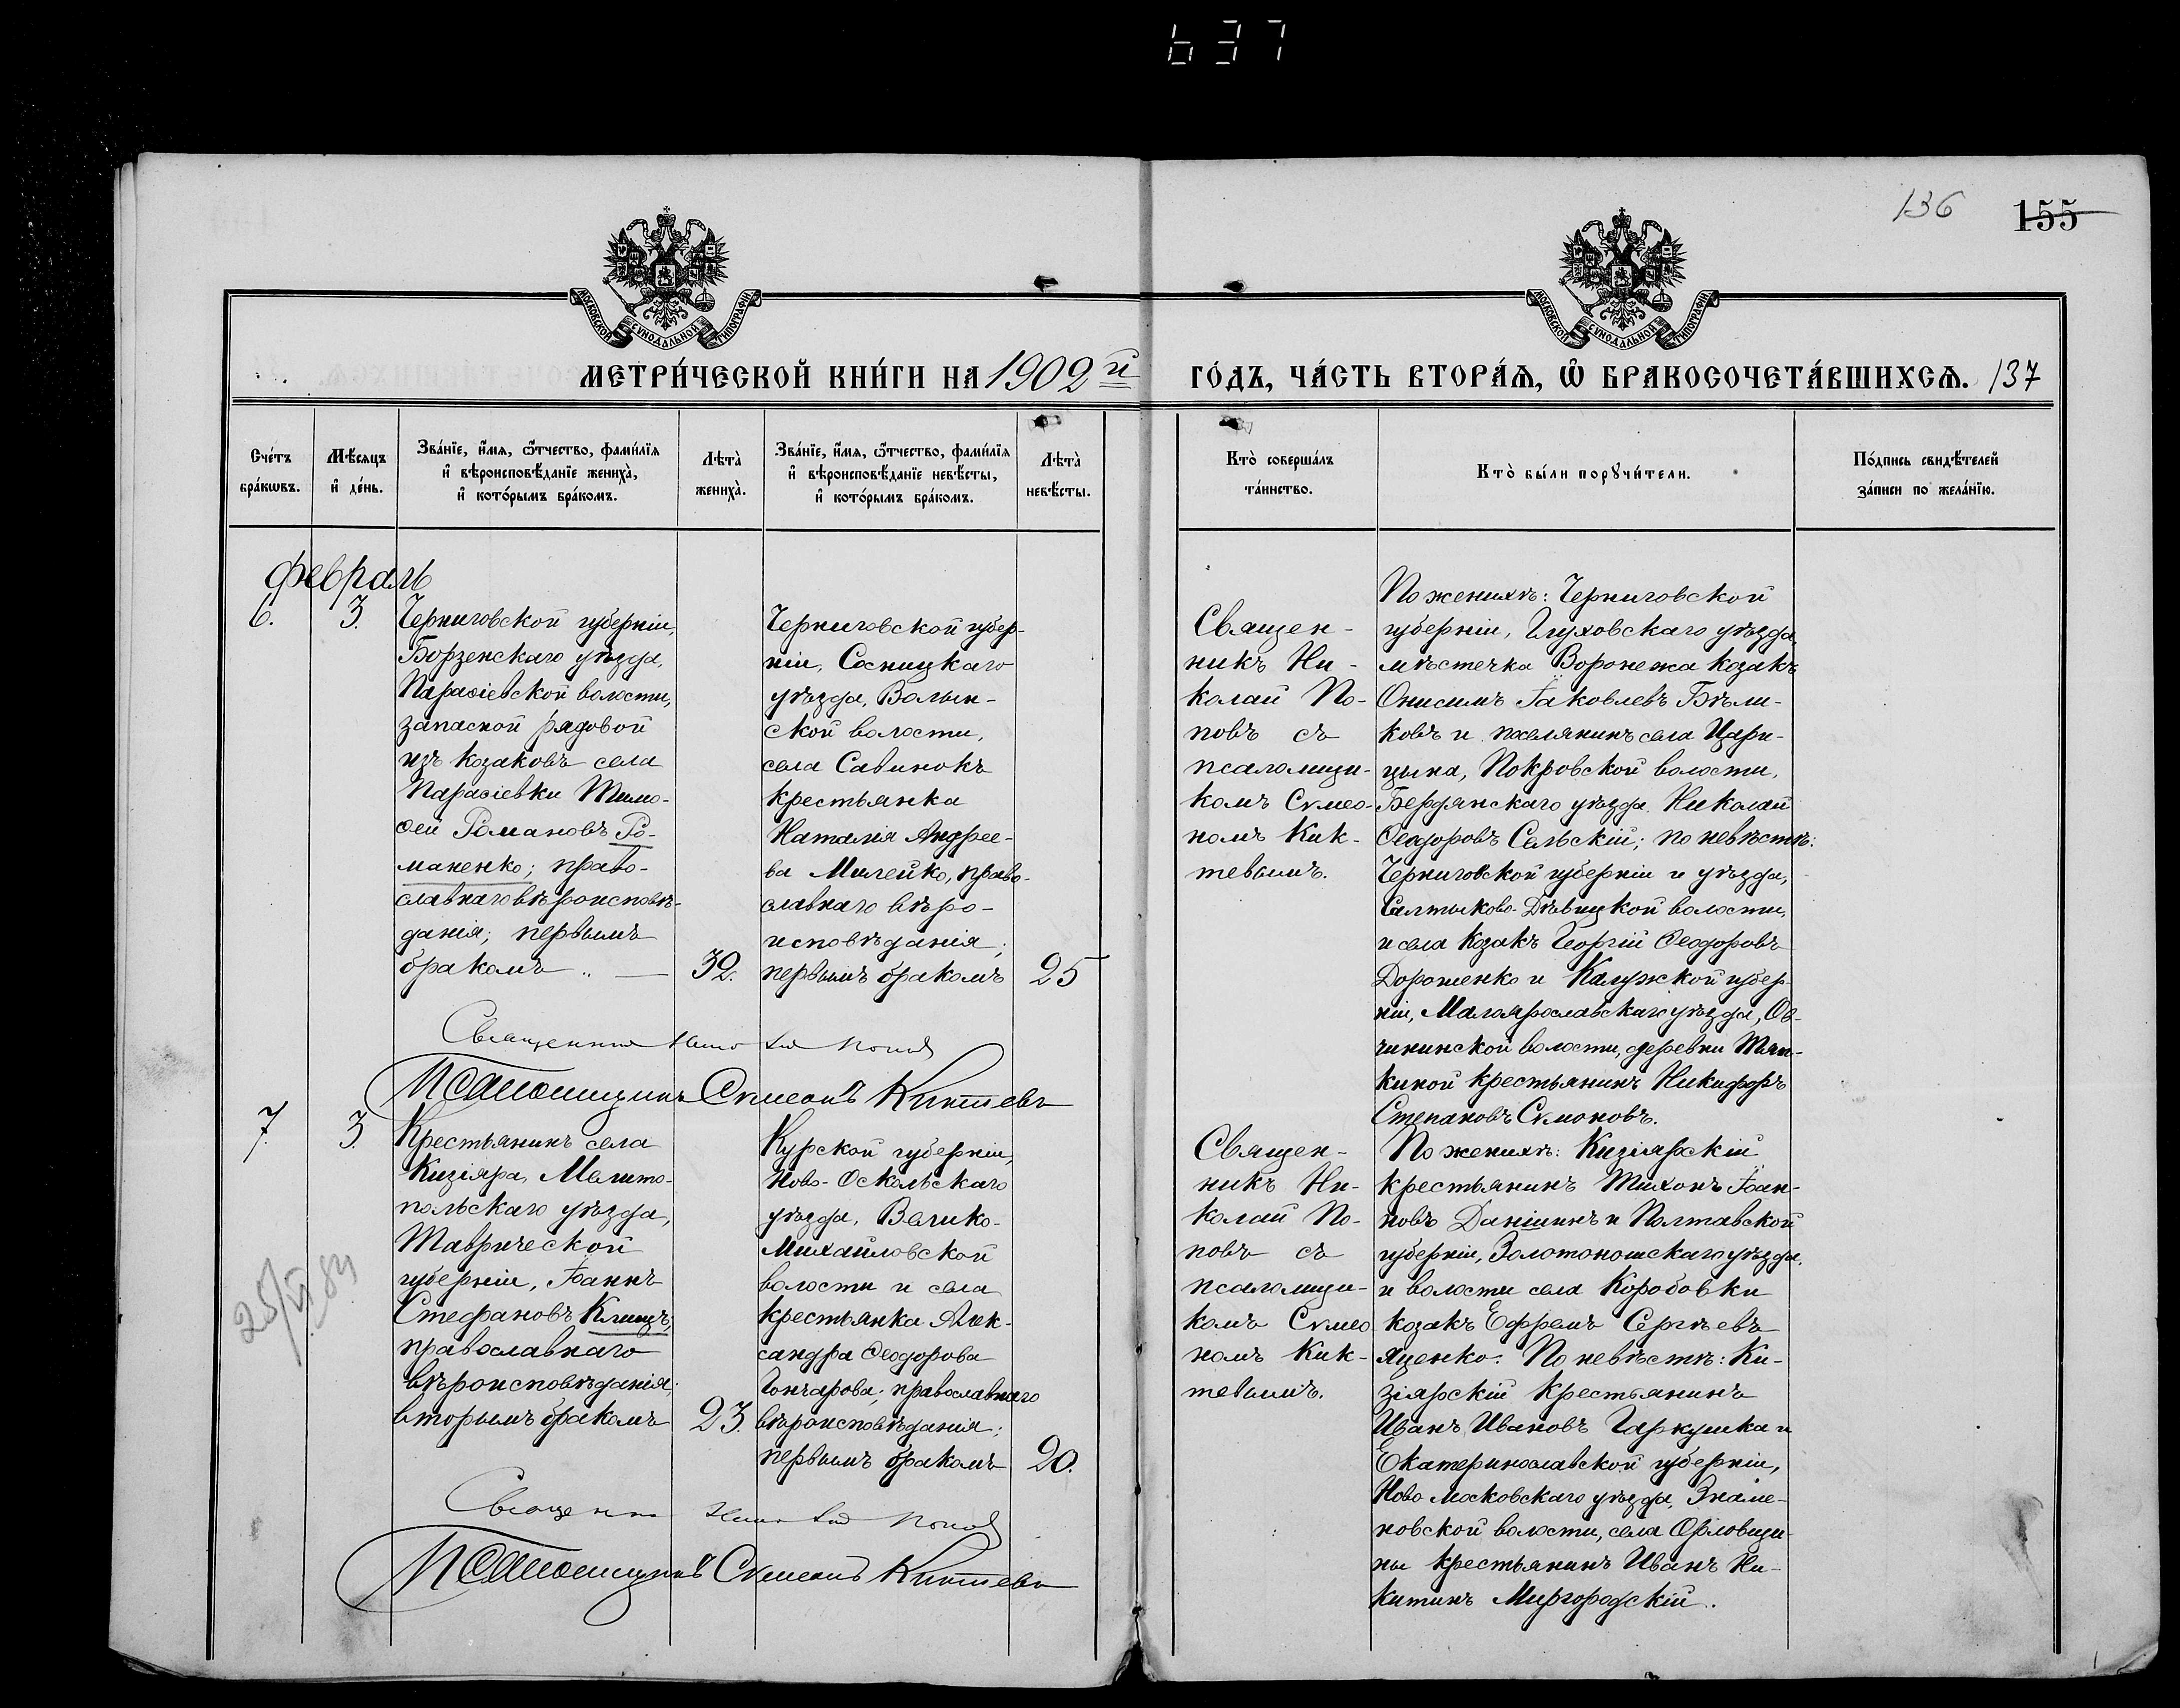 637
136 155
МОСКОВСКОЙ СѴНОДАЛЬНОЙ ТИПОГРАФІИ
МОСКОВСКОЙ СѴНОДАЛЬНОЙ ТИПОГРАФІИ
МЕТРИ́ЧЕСКОЙ КНИ́ГИ НА 1902й ГО́ДЪ, ЧА́СТЬ ВТОРА́Ѧ, Ѽ БРАКОСОЧЕТА́ВШИХСѦ. 137
Сче́тъ
бра́кѡвъ.
Мѣ́сѧцъ
и҆ де́нь.
Зва́нїе, и҆́мѧ, ѻ҆́тчество, фами́лїѧ
и҆ вѣроисповѣ́данїе женихà,
и҆ кото́рымъ бра́комъ.
Лѣтà
женихà.
Зва́нїе, и҆́мѧ, ѻ҆́тчество, фами́лїѧ
и҆ вѣроисповѣ́данїе невѣ́сты,
и҆ кото́рымъ бра́комъ.
Лѣтà
невѣ́сты.
Ктò соверша́лъ
та́инство.
Ктò бы́ли порꙋчи́тели.
По́дпись свидѣ́телей
за́писи по жела́нїю.
Февраль
6.
3.
Черниговской губерніи,
Борзенскаго уѣзда,
Парафіевской волости,
запасной рядовой
изъ козаковъ села
Парафіевки Тимо-
ѳей Романовъ Ро-
маненко; право-
славнаго вѣроисповѣ-
данія; первымъ
бракомъ „ —
32.
Черниговской губер-
ніи, Сосницкаго
уѣзда, Волын-
ской волости,
села Савинокъ
крестьянка
Наталія Андрее-
ва Милейко, право-
славнаго вѣро-
исповѣданія;
первымъ бракомъ
25
Священ-
никъ Ни-
колай По-
повъ съ
псаломщи-
комъ Симео-
номъ Кик-
тевымъ.
По женихѣ: Черниговской
губерніи, Глуховскаго уѣзда,
мѣстечка Воронежа козакъ
Онисимъ Іаковлевъ Бѣли-
ковъ и поселянинъ села Цари-
цына, Покровской волости,
Бердянскаго уѣзда Николай
Ѳеодоровъ Сельскій; по невѣстѣ:
Черниговской губерніи и уѣзда,
Салтыково-Дѣвицкой волости,
и села козакъ Георгій Ѳеодоровъ
Дорошенко и Калужской губер-
ніи, Малоярославскаго уѣзда, Ов-
чининской волости, деревни
киной крестьянинъ Никифоръ
Степановъ Симоновъ.
Священникъ Николай Поповъ
Псаломщикъ Симеонъ Киктевъ
7.
3.
Крестьянинъ села
Кизіяра, Мелито-
польскаго уѣзда,
Таврической
губерніи, Іоаннъ
Стефановъ Клищъ;
православнаго
вѣроисповѣданія;
вторымъ бракомъ
23.
Курской губерніи,
Ново-Оскольскаго
уѣзда, Велико-
Михайловской
волости и села
крестьянка Алек-
сандра Ѳеодорова
Гончарова; православнаго
вѣроисповѣданія;
первымъ бракомъ
20.
Священ-
никъ Ни-
колай По-
повъ съ
псаломщи-
комъ Симео
номъ Кик-
тевымъ.
По женихѣ: Кизіярскій
крестьянинъ Тихонъ Іоан-
новъ Даншинъ и Полтавской
губерніи, Золотоношскаго уѣзда,
и волости села Коробовки
козакъ Ефремъ Сергѣевъ
Яценко. По невѣстѣ: Ки-
зіярскій крестьянинъ
Иванъ Ивановъ Гаркушка и
Екатеринославской губерніи,
Ново Московскаго уѣзда, Знаме-
новской волости, села Орловщи-
ны крестьянинъ Иванъ Ни-
китинъ Миргородскій.
Священникъ Николай Поповъ
Псаломщикъ Симеонъ Киктевъ
25/VI 84